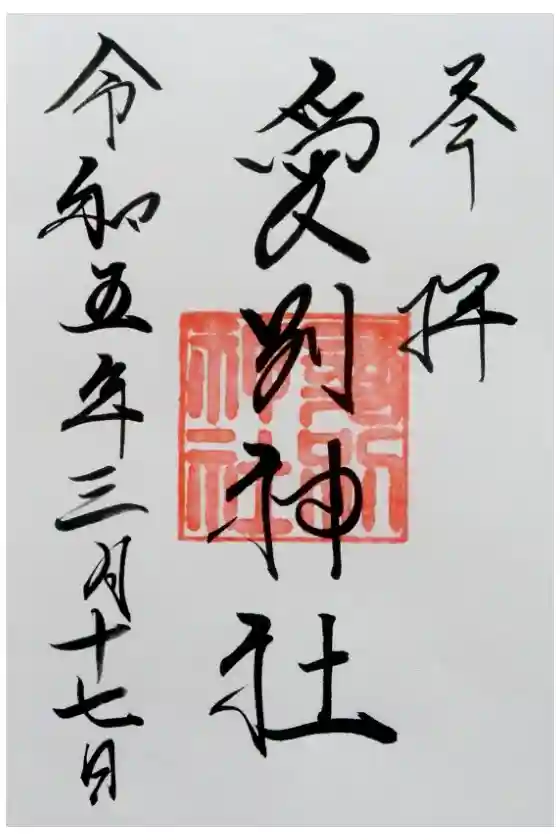 奉拝
愛別神社
愛別
神社
令和五年三月十七日